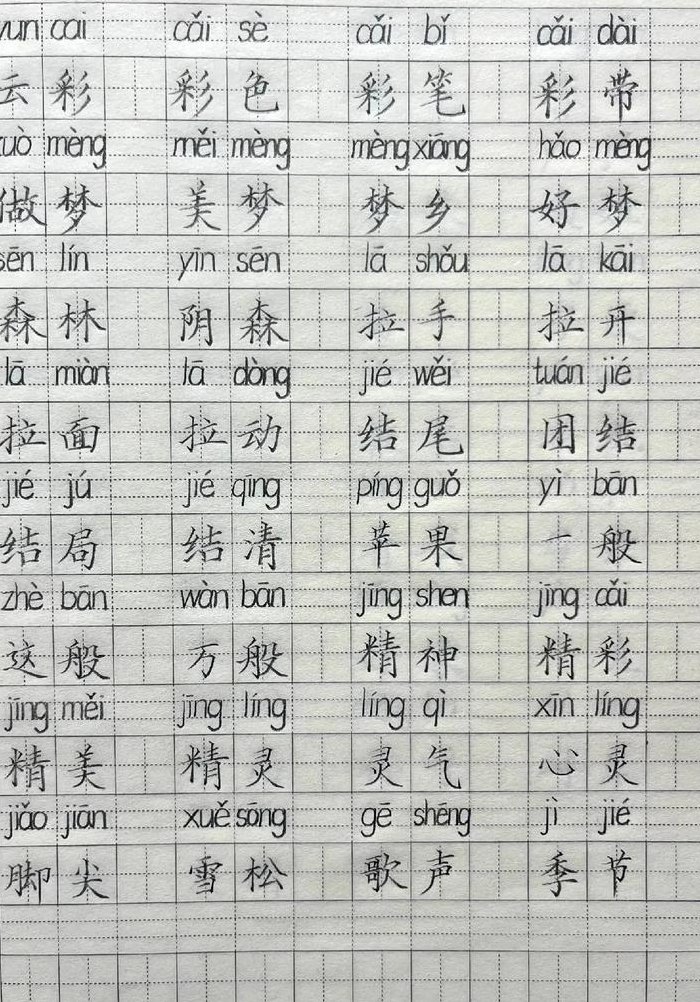 yun cai cǎi sè cǎi bǐ cǎi dài
云彩 彩色 彩笔 彩带
zuò mèng měi mèng mèng xiāng hǎo mèng
做梦 美梦 梦乡 好梦
sēn lín yīn sēn lā shǒu lā kāi
森林 阴森 拉手 拉开
lā miàn lā dòng jié wěi tuán jié
拉面 拉动 结尾 团结
jié jú jié qīng píng guǒ yì bān
结局 结清 苹果 一般
zhè bān wàn bān jīng shen jīng cǎi
这般 万般 精神 精彩
jīng měi jīng líng líng qì xīn líng
精美 精灵 灵气 心灵
jiǎo jiān xuě sōng gē shēng jì jié
脚尖 雪松 歌声 季节